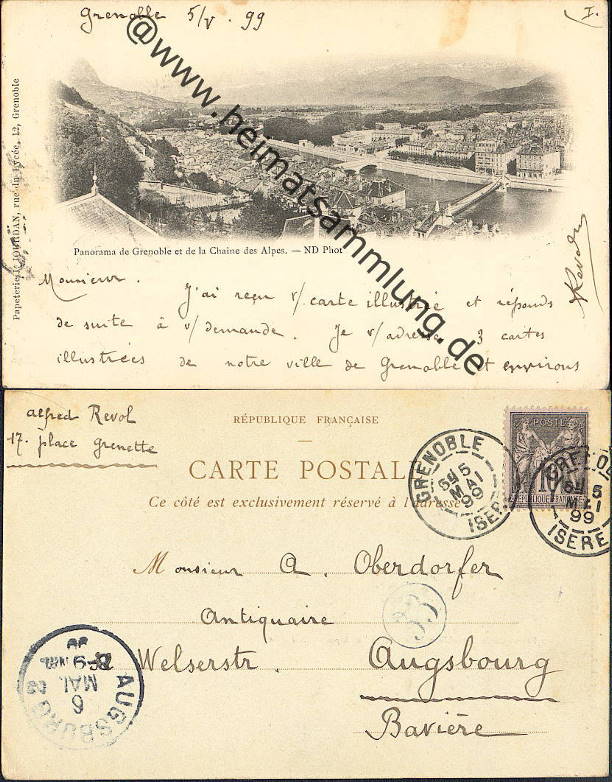 Grenoble 5/V. 99
I.
@www.heimatsammlung.de
Papeterie JOURDAN, rue du Lycée, 12, Grenoble
Panorama de Grenoble et de la Chaine des Alpes. — ND Phot
Monsieur.
J'ai reçu v/ carte illustrée et réponds
de suite à v/ demande. Je v/ adresse 3 cartes
illustrées de notre ville de Grenoble et environs
ARevol
alfred Revol
17. place Grenette
RÉPUBLIQUE FRANÇAISE
CARTE POSTALE
Ce côté est exclusivement réservé à l'adresse
POSTE
10
REPUBLIQUE FRANÇAISE
GRENOBLE
5
MAI
99
ISERE
GRENOBLE
5
MAI
99
ISERE
Monsieur A. Oberdorfer
Antiquaire
33
Welserstr. Augsbourg
Bavière
AUGSBURG
6
MAI